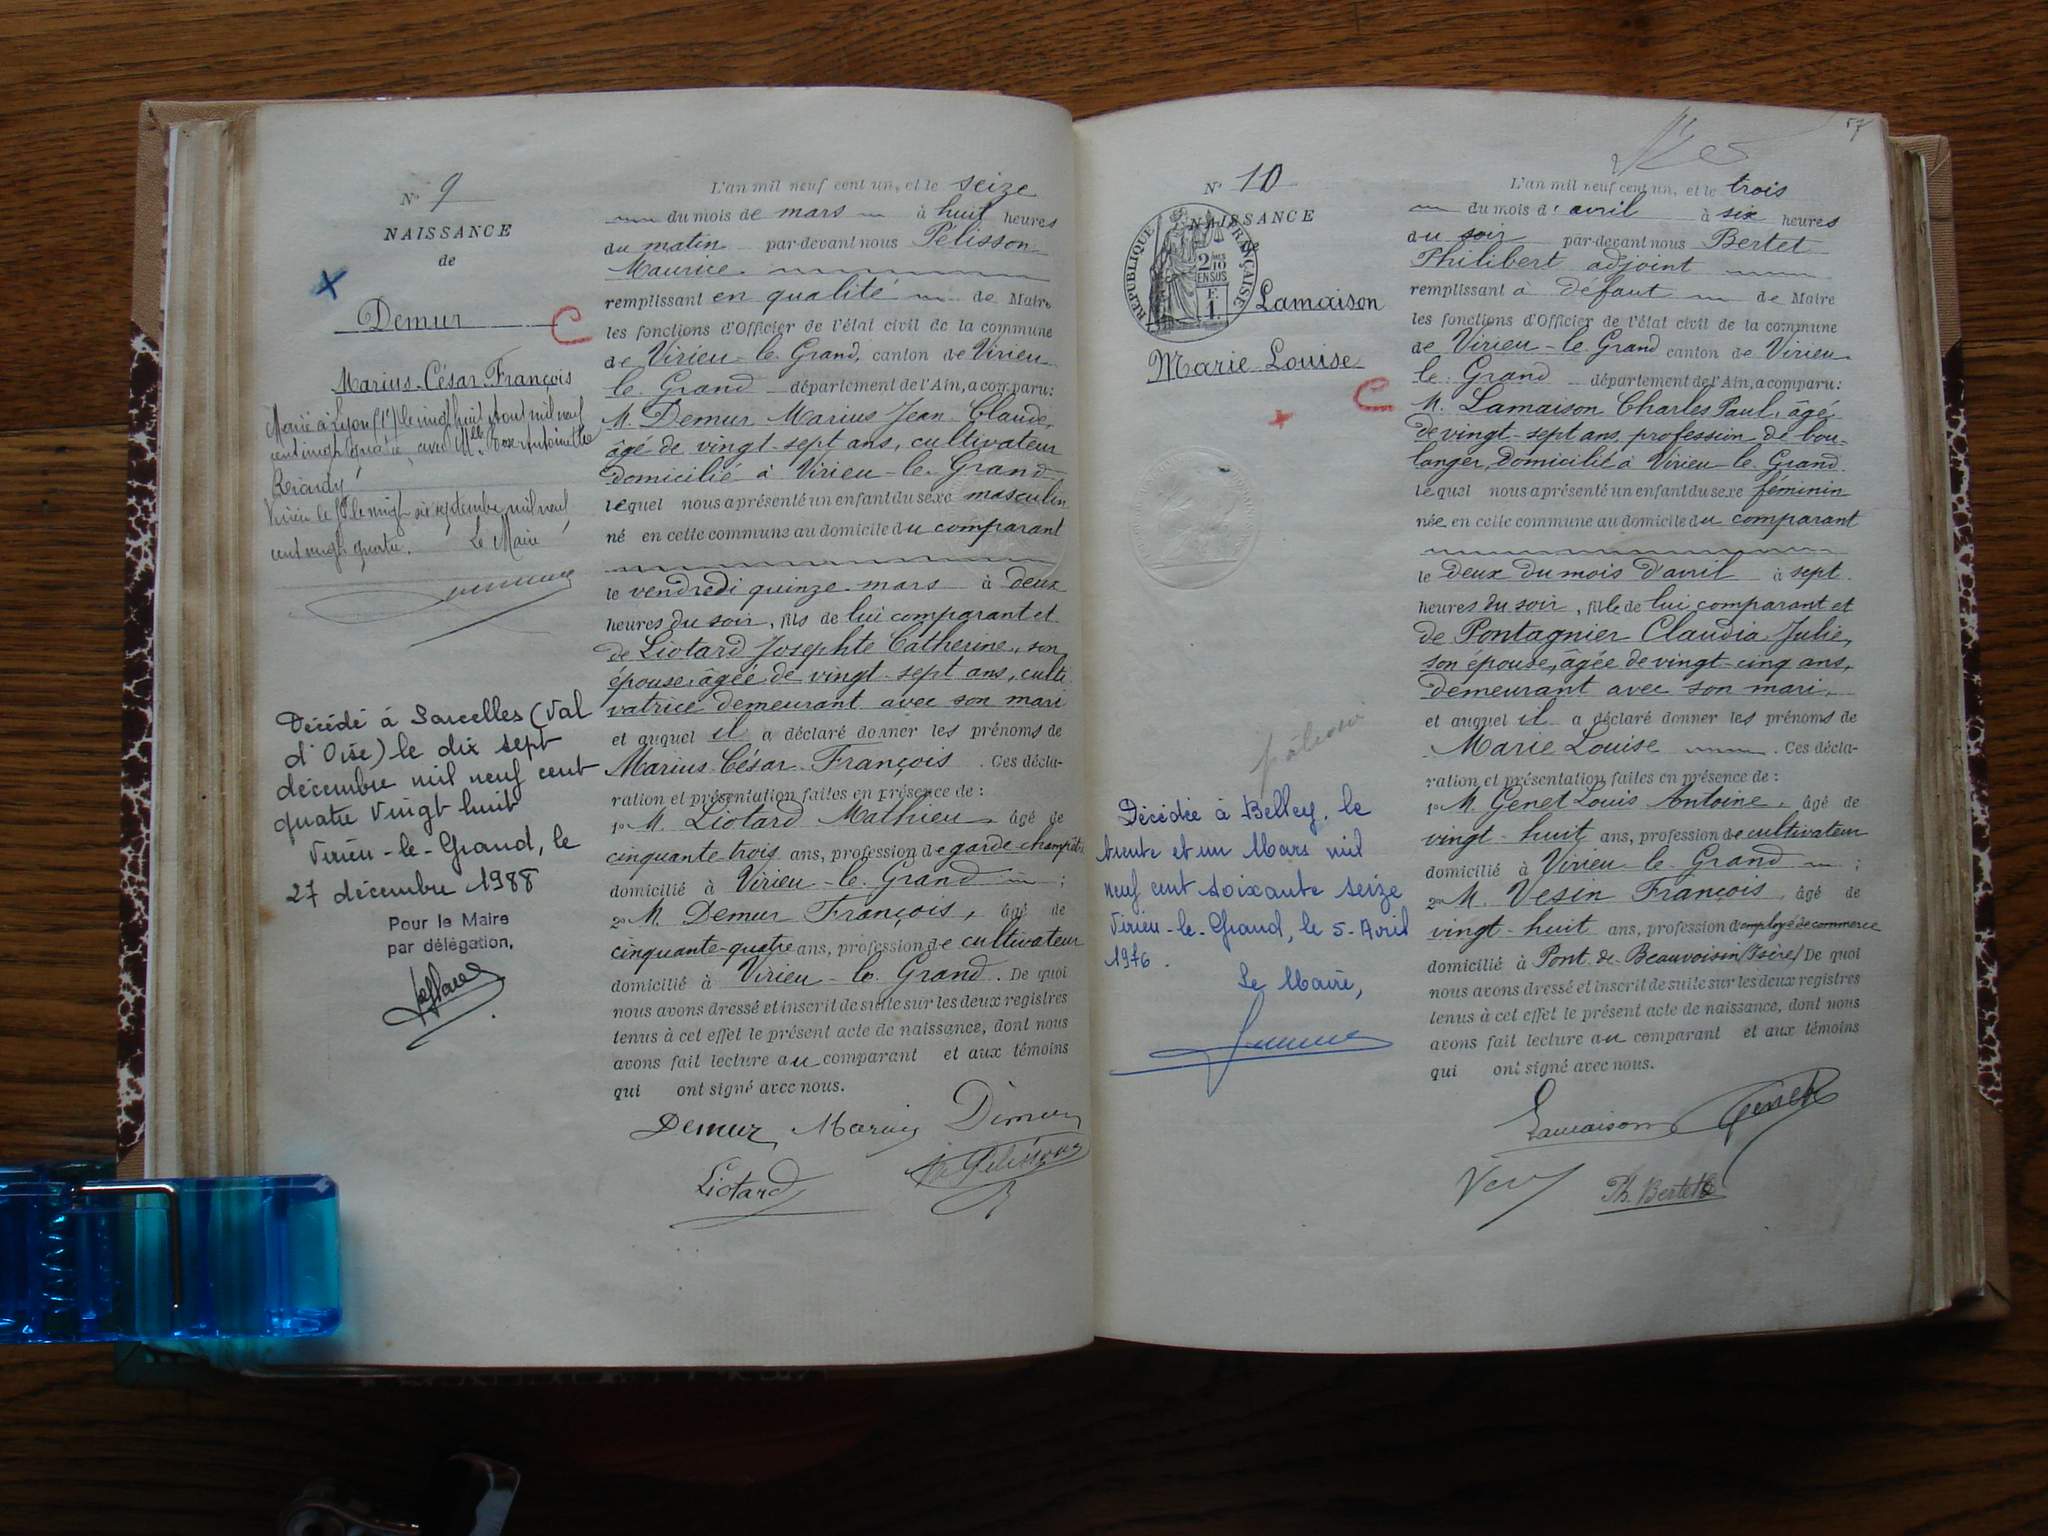 Nº 9
NAISSANCE
de
Demur
Marius-César-François
Marié à Lyon le vingt huit Août mil neuf
cent vingt quatre avec Mlle Antoinette
Virieu le Gd le vingt six septembre mil neuf
cent vingt quatre. Le Maire
Décédé à Sarcelles (Val
d'Oise) le dix sept
décembre mil neuf cent
quatre vingt huit
Virieu-le-Grand, le
27 décembre 1988
Pour le Maire
par délégation,
L'an mil neuf cent un, et le seize
du mois de mars à huit heures
du matin par-devant nous Pélisson
Maurice
remplissant en qualité de Maire
les fonctions d'Officier de l'état civil de la commune
de Virieu-le-Grand, canton de Virieu-
le-Grand département de l'Ain, a comparu:
M. Demur Marius Jean Claude,
âgé de vingt-sept ans, cultivateur
domicilié à Virieu-le-Grand
lequel nous a présenté un enfant du sexe masculin
né en cette commune au domicile du comparant
le vendredi quinze mars à deux
heures du soir, fils de lui comparant et
de Liotard Josephte Catherine, son
épouse, âgée de vingt-sept ans, culti
vatrice demeurant avec son mari
et auquel il a déclaré donner les prénoms de
Marius-César-François. Ces décla-
ration et présentation faites en présence de:
1º M. Liotard Mathieu, âgé de
cinquante-trois ans, profession de garde-champêtre
domicilié à Virieu-le-Grand ;
2º M. Demur François, âgé de
cinquante-quatre ans, profession de cultivateur
domicilié à Virieu-le-Grand. De quoi
nous avons dressé et inscrit de suite sur les deux registres
tenus à cet effet le présent acte de naissance, dont nous
avons fait lecture au comparant et aux témoins
qui ont signé avec nous.
Demur Marius Demur
Liotard Pélisson
57
Nº 10
NAISSANCE
de
RÉPUBLIQUE FRANÇAISE
2/10 EN SUS
F.
1.
Lamaison
Marie Louise
Décédée à Belley, le
trente et un Mars mil
neuf cent soixante seize
Virieu-le-Grand, le 5 Avril
1976.
Le Maire,
L'an mil neuf cent un, et le trois
du mois d'avril à six heures
du soir par-devant nous Bertet
Philibert adjoint
remplissant à défaut de Maire
les fonctions d'Officier de l'état civil de la commune
de Virieu-le-Grand canton de Virieu-
le-Grand département de l'Ain, a comparu:
M. Lamaison Charles Paul, âgé
de vingt-sept ans, profession de bou-
langer, domicilié à Virieu-le-Grand
lequel nous a présenté un enfant du sexe féminin
née en cette commune au domicile du comparant
le deux du mois d'avril à sept
heures du soir, fille de lui comparant et
de Pontagnier Claudia Julie,
son épouse, âgée de vingt-cinq ans,
demeurant avec son mari,
et auquel il a déclaré donner les prénoms de
Marie Louise. Ces décla-
ration et présentation faites en présence de:
1º M. Genet Louis Antoine, âgé de
vingt-huit ans, profession de cultivateur
domicilié à Virieu-le-Grand ;
2º M. Vesin François, âgé de
vingt-huit ans, profession d'employé de commerce
domicilié à Pont-de-Beauvoisin (Isère) De quoi
nous avons dressé et inscrit de suite sur les deux registres
tenus à cet effet le présent acte de naissance, dont nous
avons fait lecture au comparant et aux témoins
qui ont signé avec nous.
Lamaison Genet
Ph. Bertet